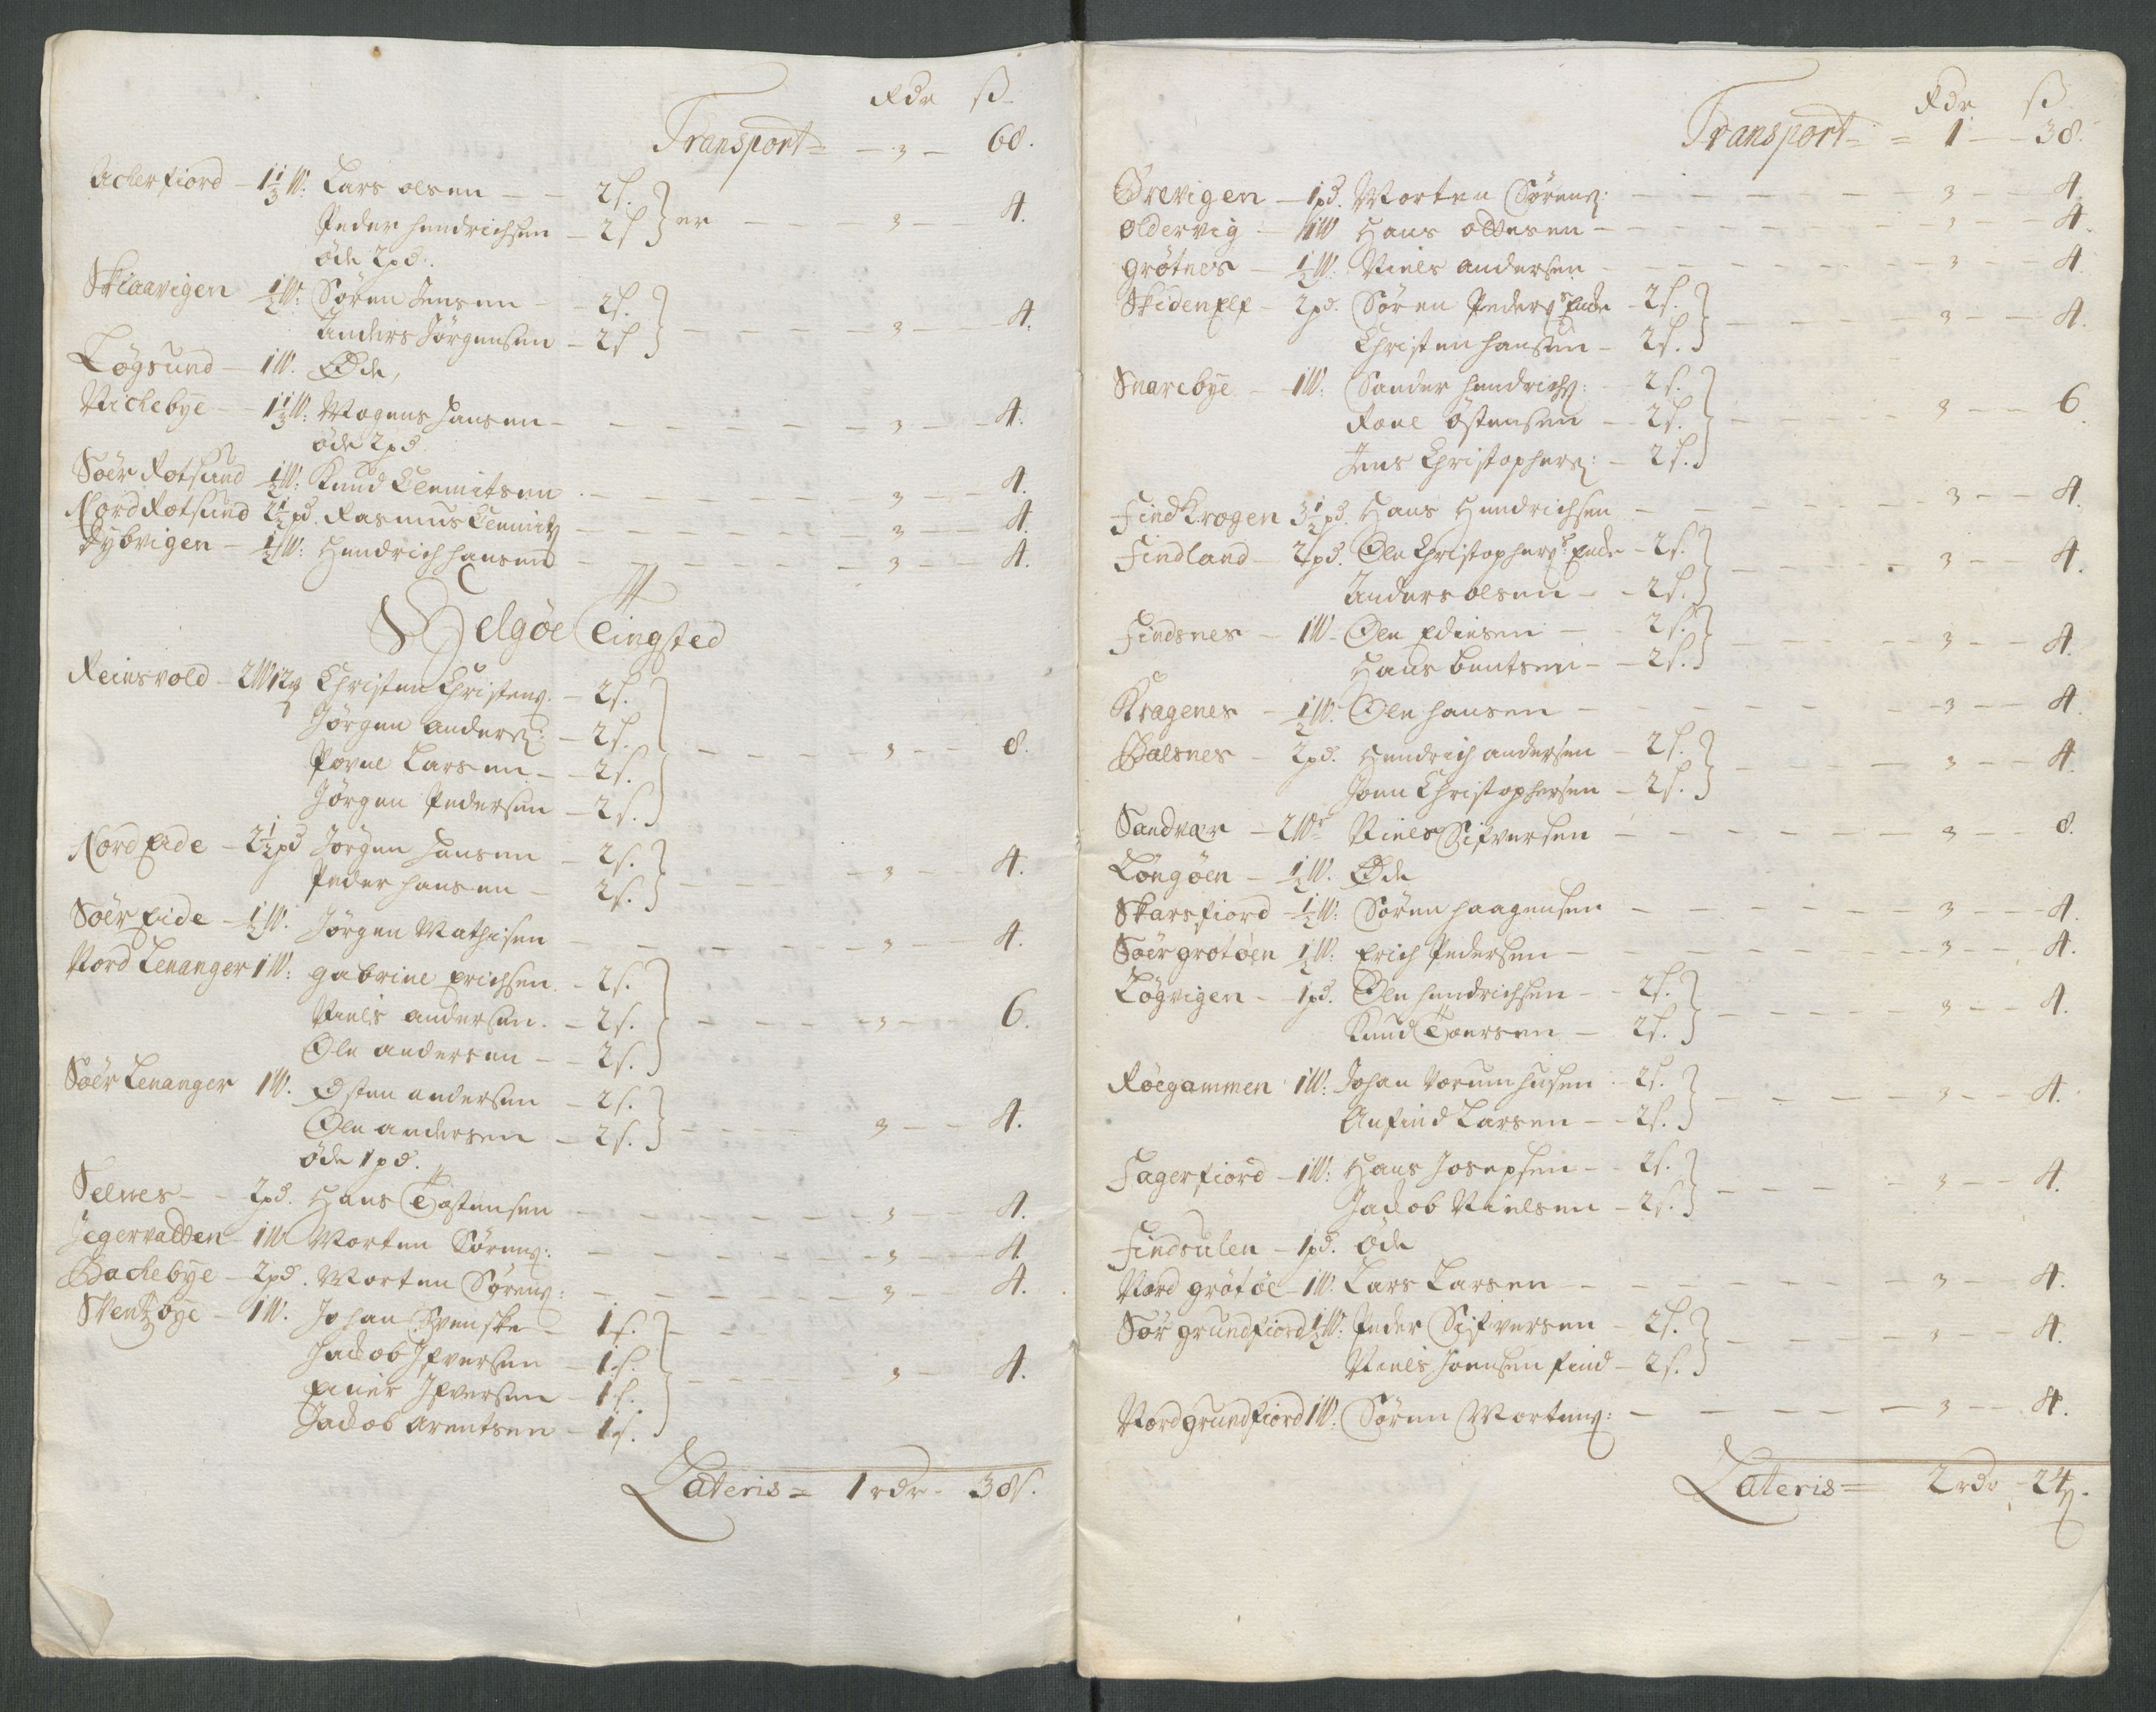 Rdr ß
Transport = — 3 — 68.
Ackerfiord — 1 1/3 W: Lars olsen — — 2 s.
Peder hendrichsen — 2 s er — 3 — 4.
öde 2 pd.
Skiaavigen 1/2 W: Sören Jensen — 2 s.
Anders Jörgensen — 2 s — 3 — 4.
Lögsund — 1 W. Øde,
Nichebye — 1 1/3 W: Mogens Hansen — 3 — 4.
öde 2 pd
Soër Rotsund 1/2 W: Knud Clemitsen — 3 — 4.
Nord Rotsund 2 1/2 pd. Rasmus Clemitz — 3 — 4.
Dybvigen — 1/2 W: Hendrich hansen — 3 — 4.
Helgöe Tingsted
Reinsvold — 2 W 12 Christen Christens. — 2 s.
Jörgen anders: — 2 s.
Povel Larsen — 2 s. — 3 — 8.
Jörgen Pedersen — 2 s.
Nord Eide — 2 1/2 pd Jörgen Jensen — 2 s.
Peder hansen — 2 s. — 3 — 4.
Soër Eide — 1/2 W. Jörgen Mathisen — 3 — 4.
Nord Lenanger 1 W: gabriel Erichsen — 2 s.
Niels andersen — 2 s. — 3 — 6.
Ole andersen — 2 s.
Soër Lenanger 1 W. Østen andersen — 2 s.
Ole andersen — 2 s. — 3 — 4.
öde 1 pd.
Selnes — 2 pd. Hans Tostensen — 3 — 4.
Jegervatten — 1 W Morten Sörens: — 3 — 4.
Bachebye — 2 pd. Morten Sörens: — 3 — 4.
Sventzbye — 1 W. Johan Svenske — 1 s.
Jacob Ifversen — 1 s.
Einer Ifversen — 1 s. — 3 — 4.
Jacob Arentsen — 1 s.
Lateris = 1 rdr — 38 s.
Rdr ß
Transport = = 1 — 38.
Ørevigen — 1 pd. Morten Sörens: — 3 — 4.
Oldervig — 1 W Hans ottesen — 3 — 4.
Grötnes — 1/2 W: Niels andersen — 3 — 4.
Skidenelf — 2 pd. Sören Peders Encke — 2 s.
Christen hansen — 2 s. — 3 — 4.
Snarebye — 1 W: Sander hendrichs: — 2 s.
Roel Östensen — 2 s. — 3 — 6.
Jens Christophers: — 2 s.
Findkrogen 3 1/2 pd. Hans Hendrichsen — 3 — 4.
Findland — 2 pd. Ole Christophers Encke — 2 s.
Anders olsen — 2 s. — 3 — 4.
Findsnes — 1 W — Ole Edisen — 2 s.
Hans bentsen — 2 s. — 3 — 4.
Kragenes — 1/2 W. Ole hansen — 3 — 4.
Balsnes — 2 pd. Hendrich andersen — 2 s.
Joen Christophersen — 2 s. — 3 — 4.
Sandvær — 2 Wr Niels Sifversen — 3 — 8.
Longöen — 1/2 W. Øde
Skarsfiord — 1/2 W: Sören haagensen — 3 — 4.
Soër grotöen 1/2 W: Erich Pedersen — 3 — 4.
Lögvigen — 1 pd. Ole hendrichsen — 2 s.
Knud Toersen — 2 s. — 3 — 4.
Röegammen 1 W: Johan Vorumhusen — 2 s.
Anfind Larsen — 2 s. — 3 — 4.
Fagerfiord — 1 W: Hans Josepsen — 2 s.
Jacob Nielsen — 2 s. — 3 — 4.
Findsulen — 1 pd. öde
Nord grötöe — 1 W. Lars Larsen — 3 — 4.
Sör grundfiord 1/2 W: Peder Sifversen — 2 s.
Niels Joensen find — 2 s. — 3 — 4.
Nord grundfiord 1 W: Sören Mortens: — 3 — 4.
Lateris = 2 rdr — 24 s.